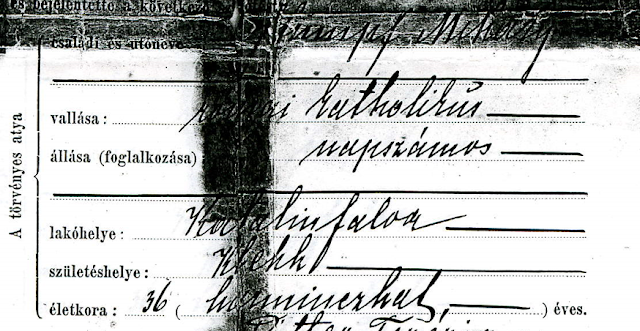 és bejelentette a következő
családi és utóneve
vallása: római katholikus
állása (foglalkozása) napszámos
A törvényes atya
lakóhelye: Katalinfalva
születéshelye: Klekk
életkora: 36 (harminczhat,) éves.